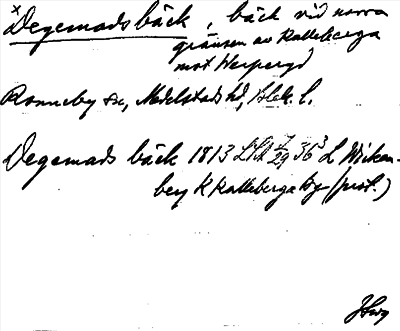 x Degemads bäck, bäck vid norra
gränsen av Kalleberga
mot Werperyd
Ronneby sn, Medelstads hd, Blek. l.
Degemads bäck 1813 LSA 36³ L Wicken-
berg K Kalleberga by (prot.)